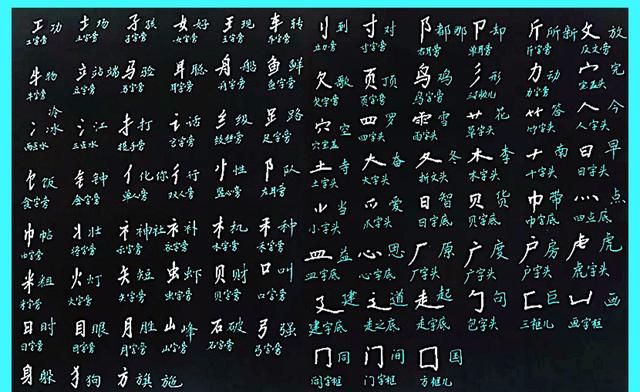 工功 土场 子孩 女好 王现 车转
工字旁 土字旁 子字旁 女字旁 王字旁 车字旁
牛物 立站端 马验 耳聪 舟船 鱼鲜
牛字旁 立字旁 马字旁 耳字旁 舟字旁 鱼字旁
冫冷冰 氵江 扌打 讠话 纟级 足路
两点水 三点水 提手旁 言字旁 绞丝旁 足字旁
饣饭 钅钟 亻化你 彳行 忄性 阝队
食字旁 金字旁 单人旁 双人旁 竖心旁 左耳旁
巾帖 丬壮 礻神社 衤补 木机 禾种
巾字旁 将字旁 示字旁 衣字旁 木字旁 禾字旁
米粗 火灯 矢短 虫虾 贝财 口叫
米字旁 火字旁 矢字旁 虫字旁 贝字旁 口字旁
日时 目眼 月胜 山峰 石破 弓强
日字旁 目字旁 月字旁 山字旁 石字旁 弓字旁
身躲 犭狗 方旗施
刂到 寸对 阝都那 卩却 斤所新 攵放
立刀旁 寸字旁 右耳旁 单耳旁 斤字旁 反文旁
欠歌 页顶 鸟鸡 彡形 力动 宀完
欠字旁 页字旁 鸟字旁 三撇儿 力字旁 宝盖头
穴空 四罗 雨雪 艹花 竹答 人今
穴宝盖 四字头 雨字头 草字头 竹字头 人字头
土寺 大奋 夂冬 木李 十南 日早
土字头 大字头 折文头 木字头 十字头 日字头
小当 爫爱 日智 贝货 巾帯 灬点
小字头 爪字头 日字底 贝字底 巾字底 四点底
皿益 心思 厂原 广度 户房 虍虎
皿字底 心字底 厂字头 广字头 户字头 虎字头
廴建 辶道 走起 勹句 匚巨 凵画
建字底 走之底 走字底 包字头 三框儿 画字框
冂同 门间 囗国
同字框 门字框 方框儿